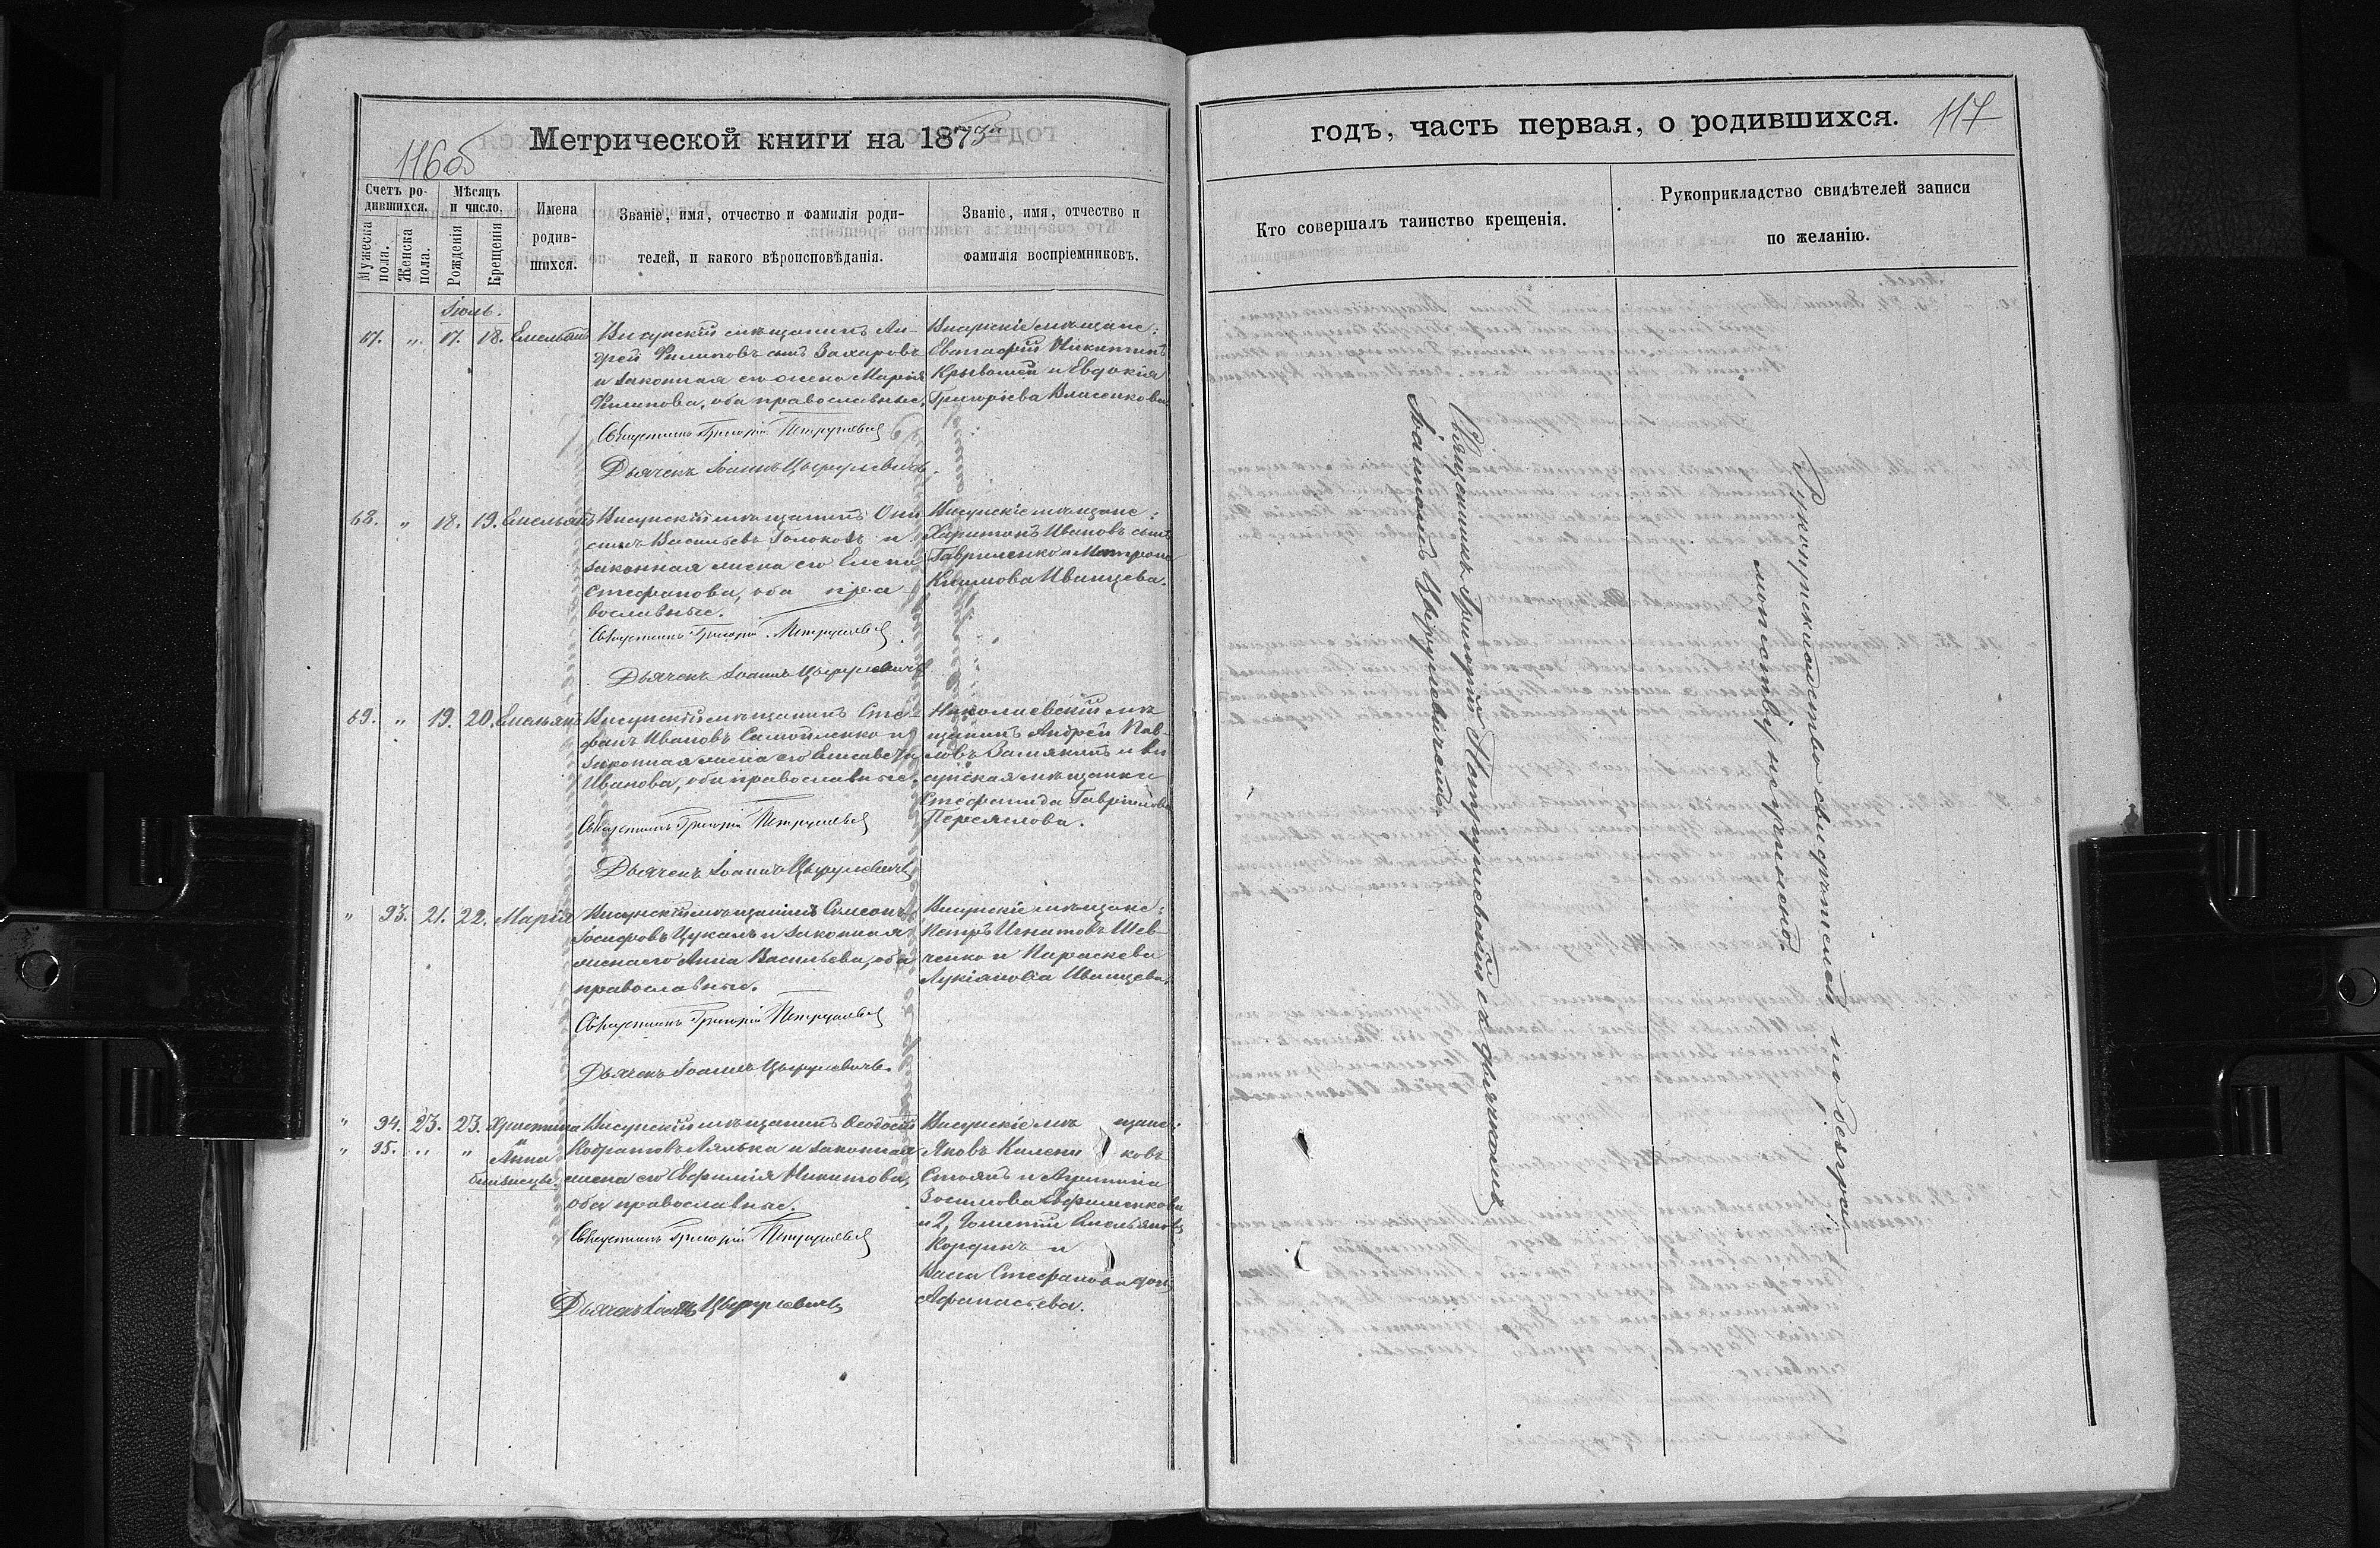 Метрической книги на 1873
116об
Счетъ ро-
дившихся.
Мужеска
пола.
Женска
пола.
Мѣсяцъ
и число.
Рожденія
Крещенія
Имена
родив-
шихся.
Званіе, имя, отчество и фамилія роди-
телей, и какого вѣроисповѣданія.
Званіе, имя, отчество и
фамилія воспріемниковъ.
Іюль.
67. „ 17. 18. Емельянъ
Висунскій мѣщанинъ Ан-
дрей Филиповъ сынъ Захаровъ
и законная его жена Марія
Филипова, оба православные.
Священникъ Григорій
Дьячекъ Іоаннъ Цыгулевичъ.
Висунскіе мѣщане:
Евстафій Никитинъ
и Евдокія
Григоріева Власенкова.
68. „ 18. 19. Емельянъ
Висунскій мѣщанинъ Они
симъ Васильевъ и
законная жена его Елена
Стефанова, оба пра
вославные.
Священникъ Григорій
Дьячекъ Іоаннъ Цыгулевичъ
Висунскіе мѣщане:
Харитонъ Ивановъ сынъ
Гавриленко и Матрона
Климова Иванцева.
69. „ 19. 20. Емельянъ
Висунскій мѣщанинъ Сте-
фанъ Ивановъ Самойленко и
законная жена его Елисавета
Иванова, оба православные.
Священникъ Григорій
Дьячекъ Іоаннъ Цыгулевичъ
Николаевскій мѣ
щанинъ Андрей Пав-
ловъ и Ви
сунская мѣщанка
Стефанида Гавріилова
„ 93. 21. 22. Марія
Висунскій мѣщанинъ Симеонъ
Іосифовъ Цукалъ и законная
жена его Анна Васильева, оба
православные.
Священникъ Григорій
Дьячекъ Іоаннъ Цыгулевичъ.
Висунскіе мѣщане:
Петръ Игнатовъ Шев-
ченко и Параскева
Лукіанова Иванцева.
„ 94. 23. 23. Христина
и
„ 95. „ „ Анна
близнецы.
Висунскій мѣщанинъ Ѳеодосій
Кодратовъ Лялька и законная
жена его Евфимія Никитова,
оба православные.
Священникъ Григорій
Дьячекъ Іоаннъ Цыгулевичъ
Висунскіе мѣ щане:
Яковъ
Стоянъ и Агрипина
Зосимова Ефименкова
и 2,
Кордикъ и
Васса Стефанова дочь
Афанасьева.
годъ, часть первая, о родившихся.
117
Кто совершалъ таинство крещенія.
Рукоприкладство свидѣтелей записи
по желанію.
Священникъ Григорій Петрушевскій съ дьячкомъ
Іоанномъ Цыгулевичемъ.
Рукоприкладство свидѣтелей по безгра-
мотству неучинено.